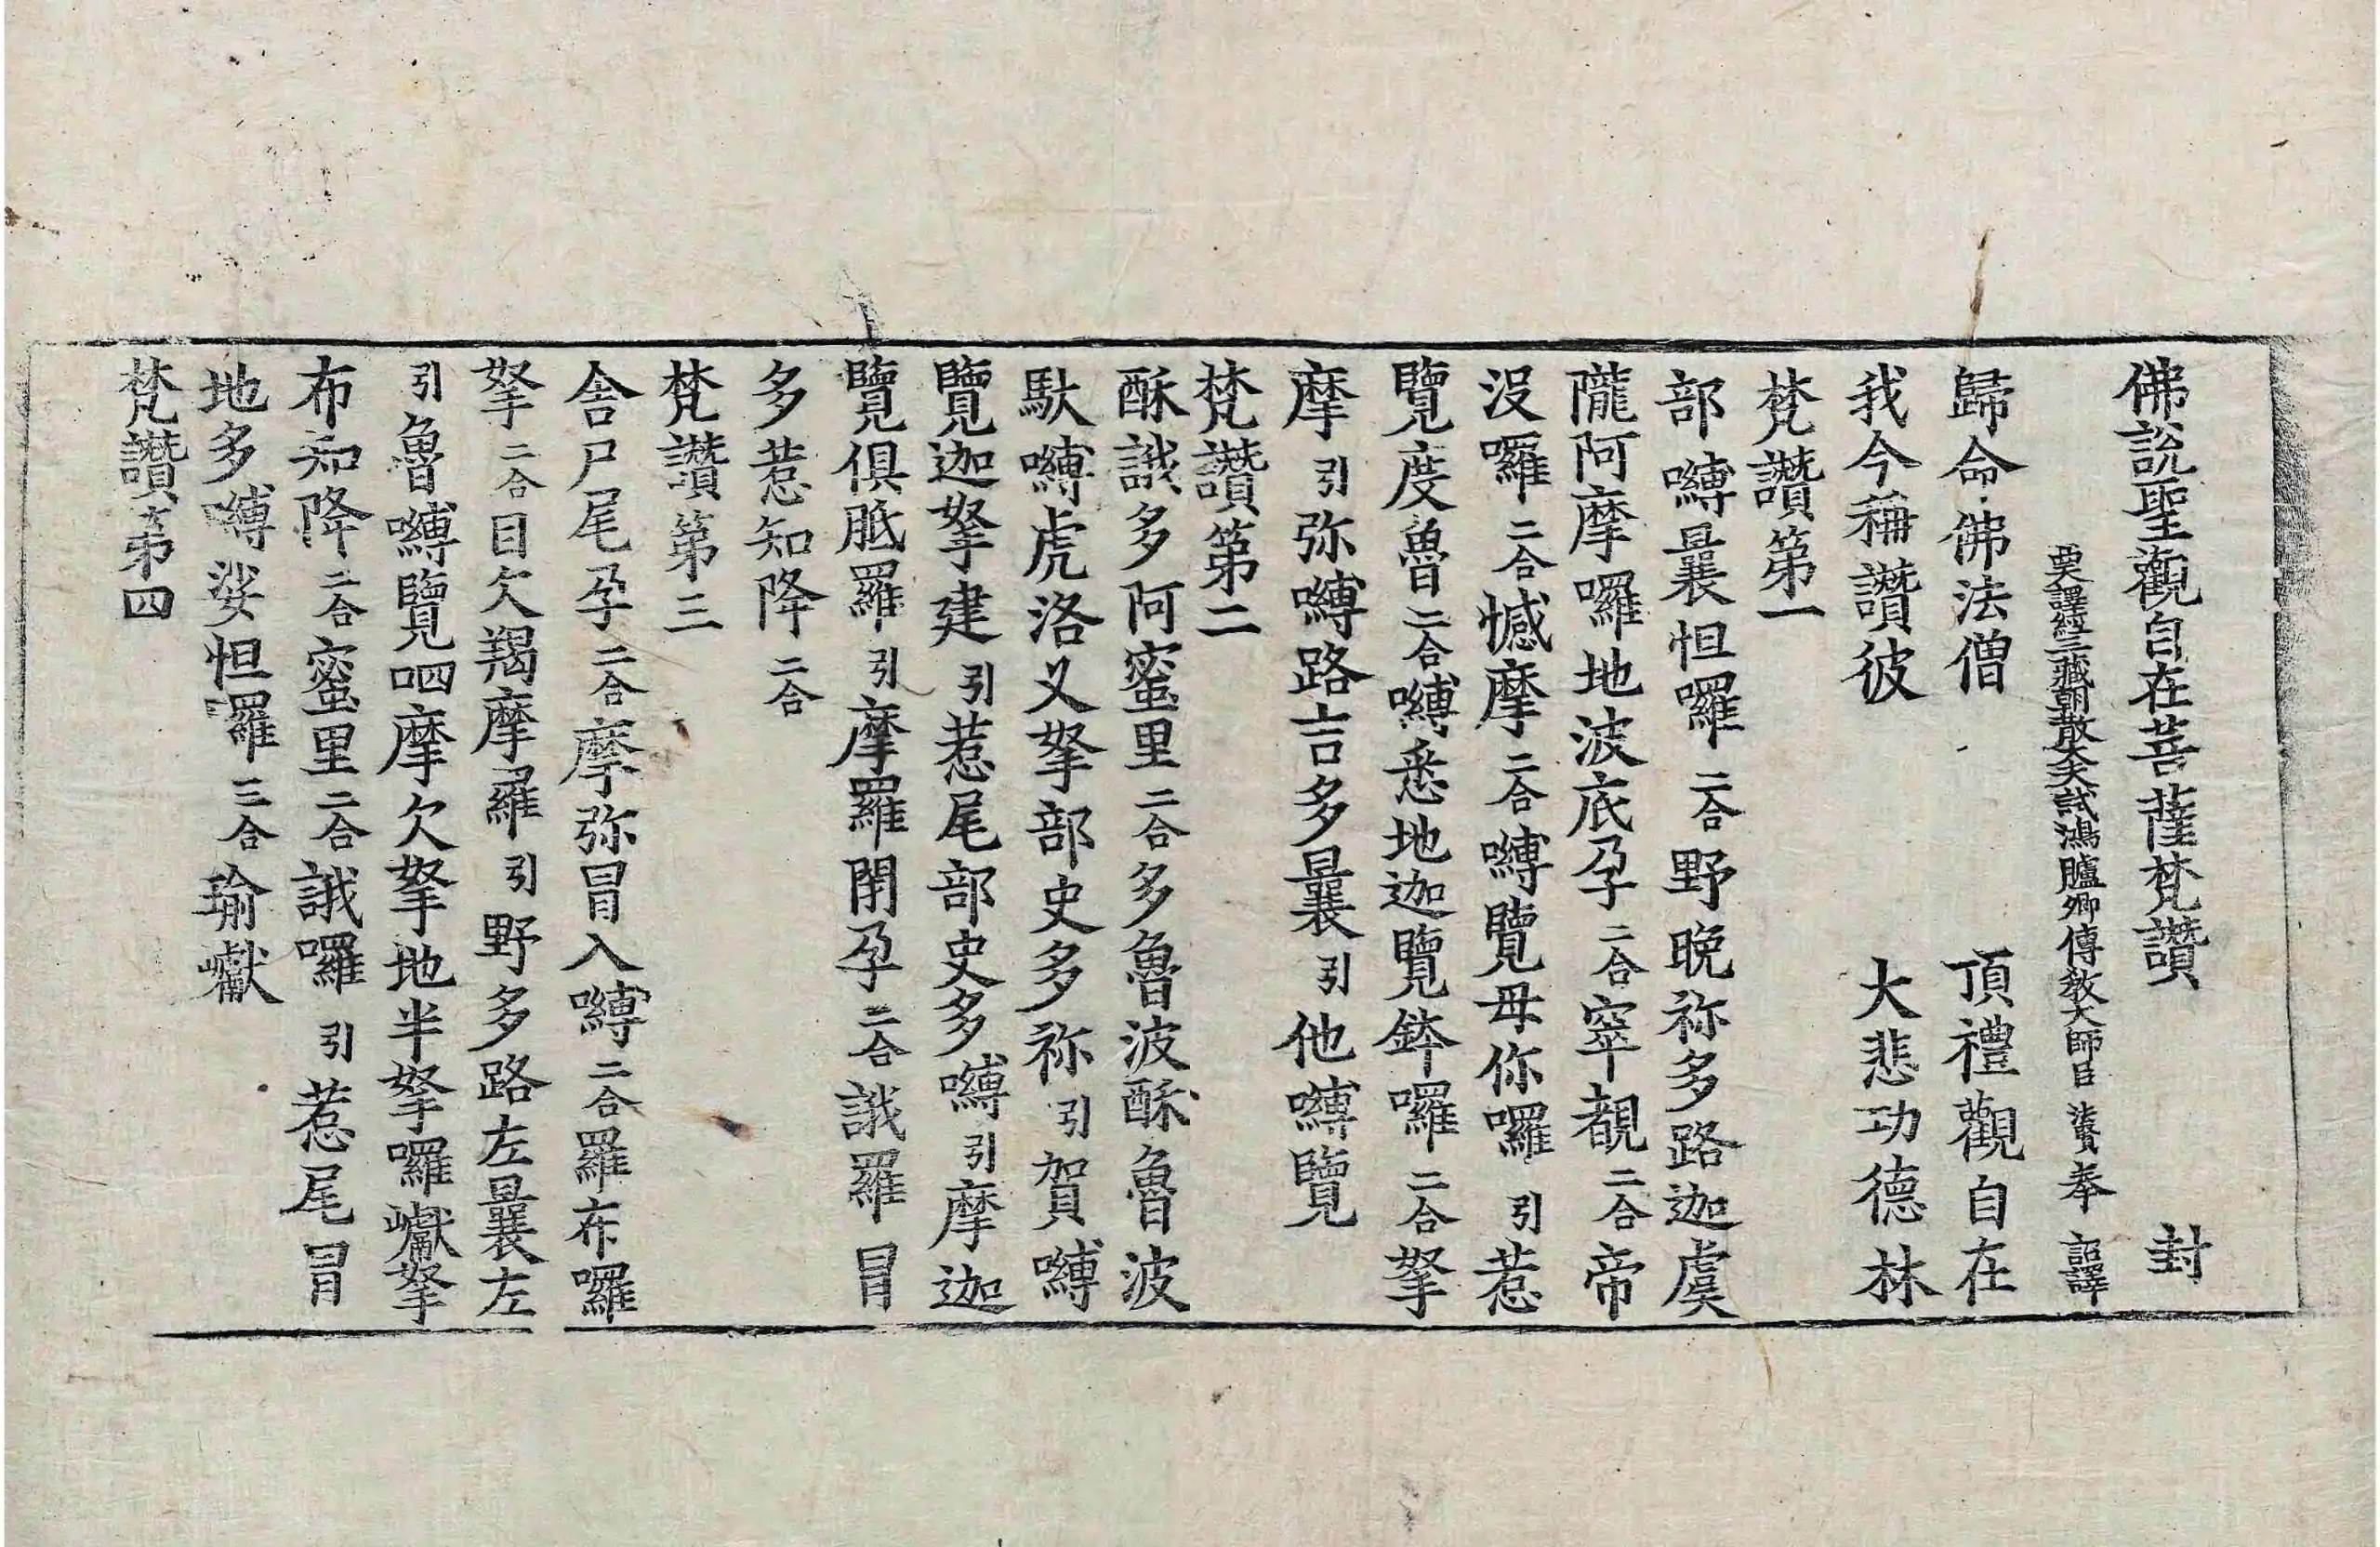 佛說聖觀自在菩薩梵讚 封
西天譯經三藏朝散大夫試鴻臚卿傳教大師臣法賢奉 詔譯
歸命佛法僧 頂禮觀自在
我今稱讚彼 大悲功德林
梵讚第一
部嚩曩怛囉二合野晚祢多路迦虞
隴阿摩囉地波底孕二合窣覩二合帝
沒囉二合憾摩二合嚩覽毋你囉引惹
覽度魯二合嚩悉地迦覽鉢囉二合拏
摩引弥嚩路吉多曩引他嚩覽
梵讚第二
酥誐多阿蜜里二合多魯波酥魯波
馱嚩虎洛叉拏部史多祢引賀嚩
覽迦拏建引惹尾部史多嚩引摩迦
覽俱胝羅引摩羅閉孕二合誐羅冒
多惹知降二合
梵讚第三
舍尸尾孕二合摩弥冒入嚩二合羅布囉
拏二合目欠羯摩羅引野多路左曩左
引魯嚩覽呬摩欠拏地半拏囉巘拏
布知降二合蜜里二合誐囉引惹尾冒
地多嚩娑怛羅三合瑜巘
梵讚第四